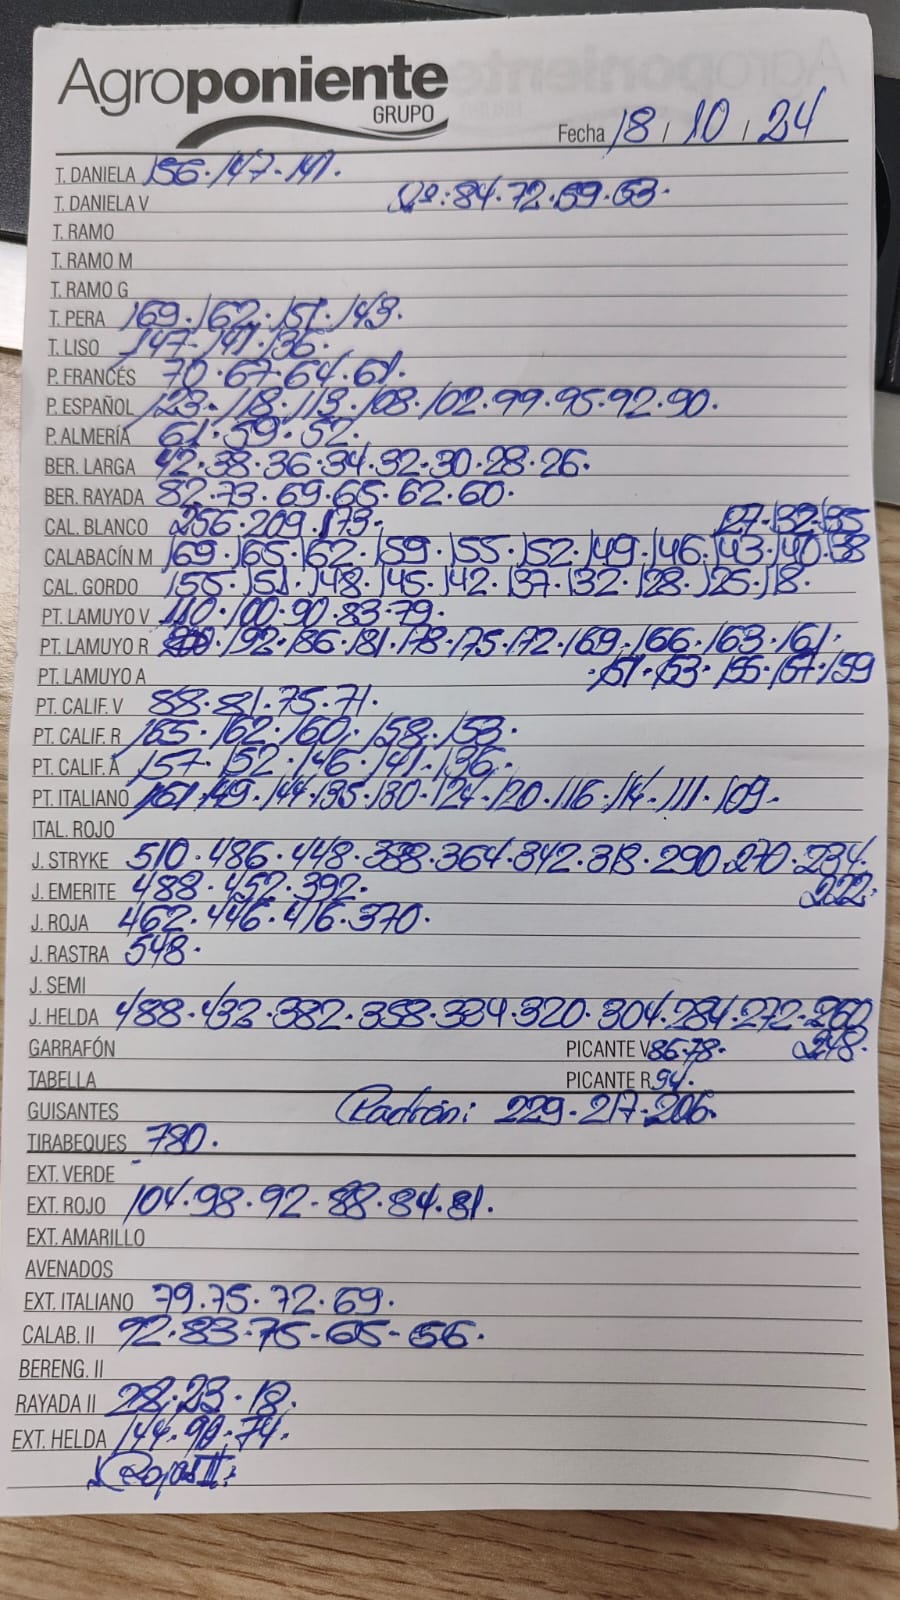 Agroponiente
GRUPO
Fecha 18 / 10 / 24
T. DANIELA 156. 147. 141.
T. DANELA V 2ª: 84. 72. 69. 63.
T. RAMO
T. RAMO M
T. RAMO G
T. PERA 169. 162. 151. 143.
T. LISO 147. 141. 136.
P. FRANCÉS 70. 67. 64. 61.
P. ESPAÑOL 123. 118. 113. 108. 102. 99. 95. 92. 90.
P. ALMERÍA 61. 59. 52.
BER. LARGA 42. 38. 36. 34. 32. 30. 28. 26.
BER. RAYADA 82. 73. 69. 65. 62. 60.
CAL. BLANCO 256. 209. 173. 127. 132. 135
CALABACÍN M 169. 165. 162. 159. 155. 152. 149. 146. 143. 140. 138
CAL. GORDO 155. 151. 148. 145. 142. 137. 132. 128. 125. 118.
PT. LAMUYO V 110. 100. 90. 83. 79.
PT. LAMUYO R 192. 186. 181. 178. 175. 172. 169. 166. 163. 161.
PT. LAMUYO A 151. 153. 155. 157. 159
PT. CALIF. V 88. 81. 75. 71.
PT. CALIF. R 165. 162. 160. 158. 153.
PT. CALIF. A 157. 152. 146. 141. 136.
PT. ITALIANO 161. 149. 144. 135. 130. 124. 120. 116. 114. 111. 109.
ITAL. ROJO
J. STRYKE 510. 486. 448. 388. 364. 342. 318. 290. 270. 234.
J. EMERITE 488. 452. 392. 222.
J. ROJA 462. 446. 416. 370.
J. RASTRA 548.
J. SEMI
J. HELDA 488. 432. 382. 358. 334. 320. 304. 284. 272. 260
GARRAFÓN PICANTE V 86. 78. 248.
TABELLA PICANTE R 94.
GUISANTES Padrón: 229. 217. 206.
TIRABEQUES 780.
EXT. VERDE
EXT. ROJO 104. 98. 92. 88. 84. 81.
EXT. AMARILLO
AVENADOS
EXT. ITALIANO 79. 75. 72. 69.
CALAB. II 92. 83. 75. 65. 56.
BERENG. II
RAYADA II 28. 23. 18.
EXT. HELDA 144. 90. 74.
Rojas II: